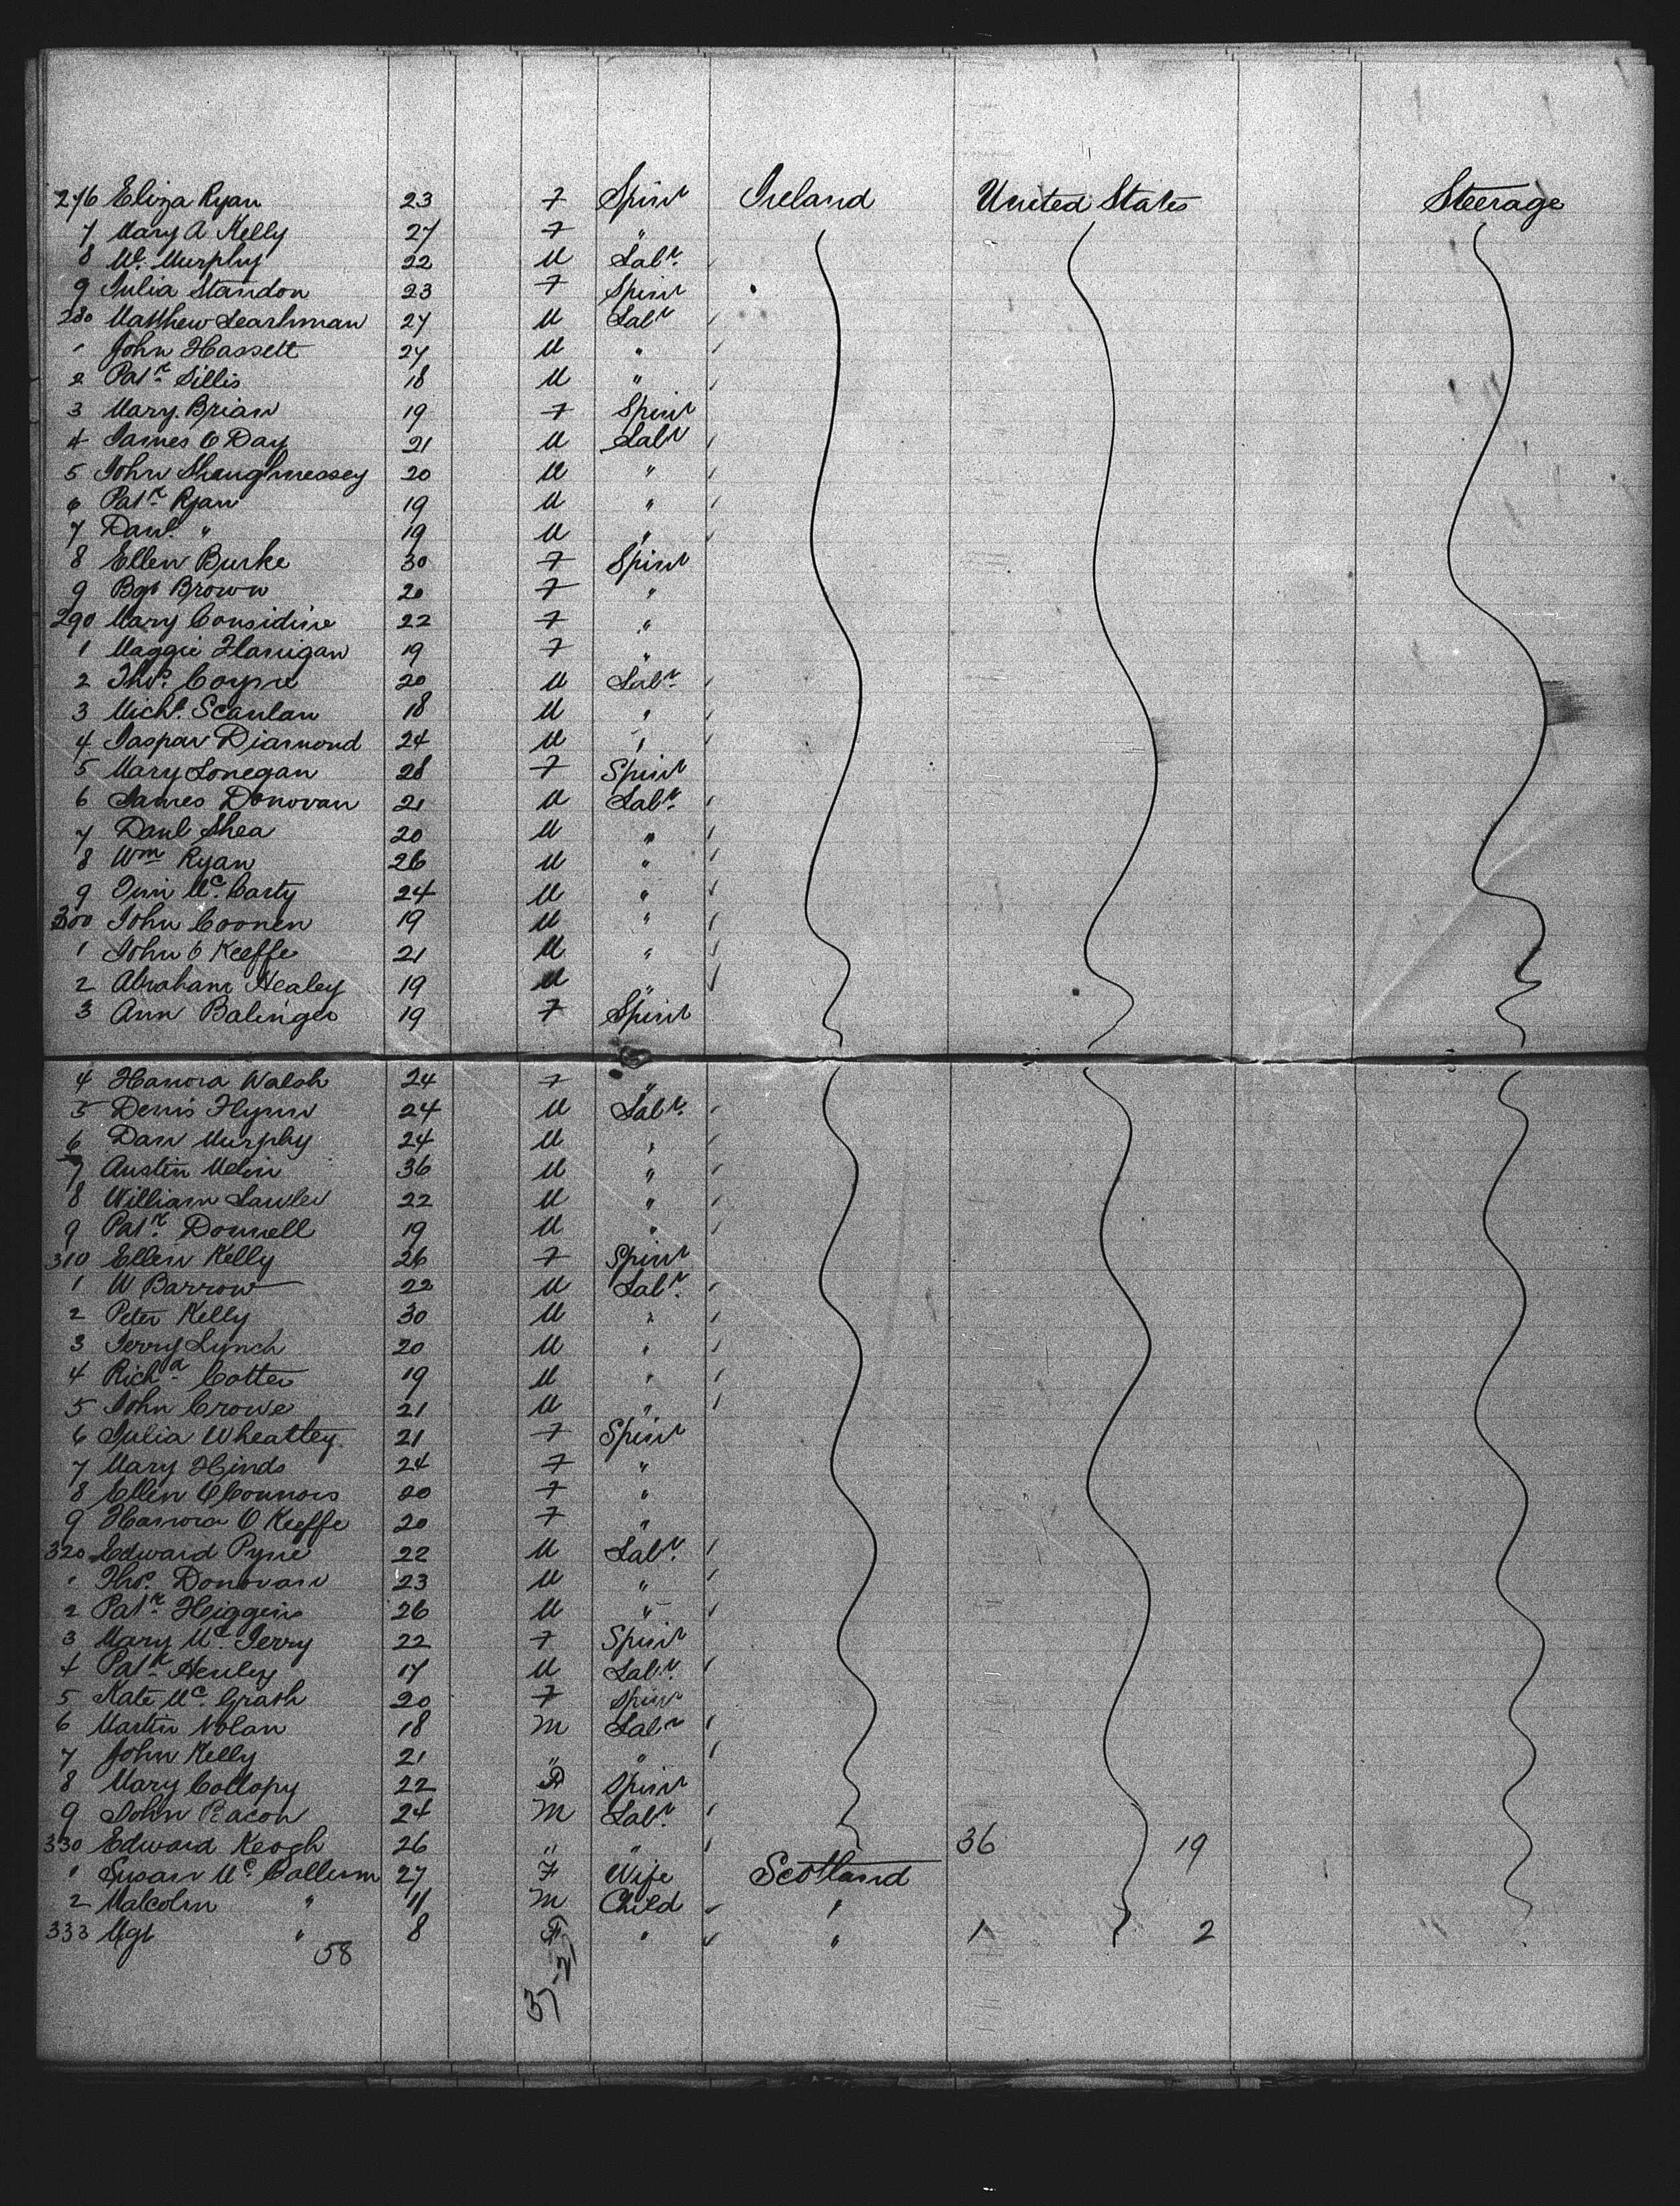 276 Eliza Ryan 23 F Spinr Ireland United States Steerage
7 Mary A Kelly 27 F "
8 Mc. Murphy 22 M Labr.
9 Julia Standon 23 F Spinr
280 Matthew Leashman 27 M Labr
1 John Hassett 27 M "
2 Patk. Sillis 18 M "
3 Mary Brian 19 F Spinr
4 James O Day 21 M Labr
5 John Shaughnessey 20 M "
6 Patk. Ryan 19 M "
7 Danl. " 19 M "
8 Ellen Burke 30 F Spinr
9 Bgt Brown 20 F "
290 Mary Considine 22 F "
1 Maggie Flanigan 19 F "
2 Thos. Coyne 20 M Labr.
3 Michl. Scanlan 18 M "
4 Jaspar Diamond 24 M "
5 Mary Lonegan 28 F Spinr
6 James Donovan 21 M Labr.
7 Danl Shea 20 M "
8 Wm Ryan 26 M "
9 Jim Mc. Carty 24 M "
300 John Coonen 19 M "
1 John O Keeffe 21 M "
2 Abraham Healey 19 M "
3 Ann Balinger 19 F Spinr
4 Hanora Walsh 24 F "
5 Denis Flynn 24 M Labr.
6 Dan Murphy 24 M "
7 Austin Melin 36 M "
8 William Lawler 22 M "
9 Patk. Donnell 19 M "
310 Ellen Kelly 26 F Spinr
1 W Barrow 22 M Labr.
2 Peter Kelly 30 M "
3 Jerry Lynch 20 M "
4 Richd Cotter 19 M "
5 John Crowe 21 M "
6 Julia Wheatley 21 F Spinr
7 Mary Hinds 24 F "
8 Ellen O'Connors 20 F "
9 Hanora O Keeffe 20 F "
320 Edward Pyne 22 M Labr.
1 Thos. Donovan 23 M "
2 Patk. Higgins 26 M "
3 Mary Mc. Jerry 22 F Spinr
4 Patk Henley 17 M Labr.
5 Kate Mc. Grath 20 F Spinr
6 Martin Nolan 18 M Labr
7 John Kelly 21 " "
8 Mary Collopy 22 F Spinr
9 John Bacon 24 M Labr.
330 Edward Keogh 26 " " 36 19
1 Susan Mc. Callum 27 F Wife Scotland
2 Malcolm " 11 M Child "
333 Mgt " 8 F " " 1 2
58
37 21